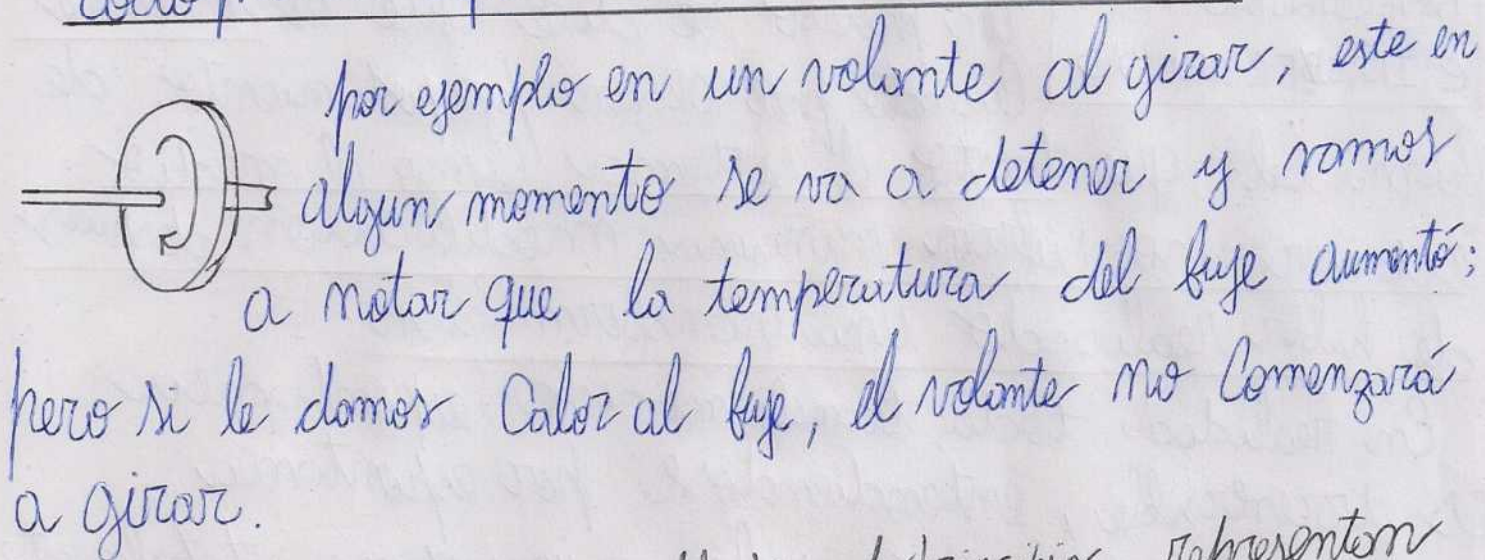 por ejemplo en un volante al girar, este en
algun momento se va a detener y vamos
a notar que la temperatura del buje aumentó;
pero si le damos Calor al buje, el volante no Comenzará
a girar.
representan